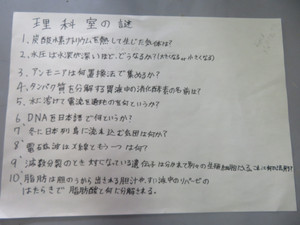 理科室の謎
1、炭酸水素ナトリウムを熱して生じた気体は?
2、水圧は水深が深いほど、どうなるか?(大きくなるor小さくなる)
3、アンモニアは何置換法で集めるか?
4、タンパク質を分解する胃液中の消化酵素の名前は?
5、水に溶けて電流を通すものを何というか?
6、DNAを日本語で何というか?
7、冬に日本列島に流れ込む気団は何か?
8、電磁波はX線ともう一つは何?
9、減数分裂のとき対になっている遺伝子は分かれて別々の生殖細胞に入る
10、脂肪は胆のうから出される胆汁や、すい液中のリパーゼの
はたらきで脂肪酸と何に分解される。